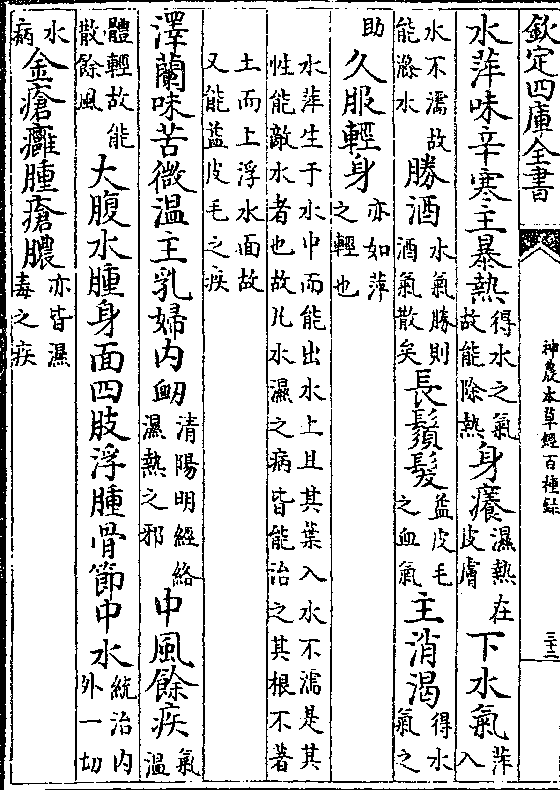 欽定四庫全書
神農本草經百種錄
三十二
水萍味辛寒主暴熱得水之氣故能除熱身癢濕熱在皮膚下水氣萍入
水不濡故能滌水勝酒水氣勝則酒氣散矣長鬚髮益皮毛之血氣主消渴得水氣之
助久服輕身亦如萍之輕也
水萍生于水中而能出水上且其葉入水不濡是其
性能敵水者也故凡水濕之病皆能治之其根不著
土而上浮水面故
又能益皮毛之疾
澤蘭味苦微溫主乳婦内衄清陽明經絡濕熱之邪中風餘疾氣溫
體輕故能散餘風大腹水腫身面四肢浮腫骨節中水統治内外一切
水病金瘡癰腫瘡膿亦皆濕毒之疾